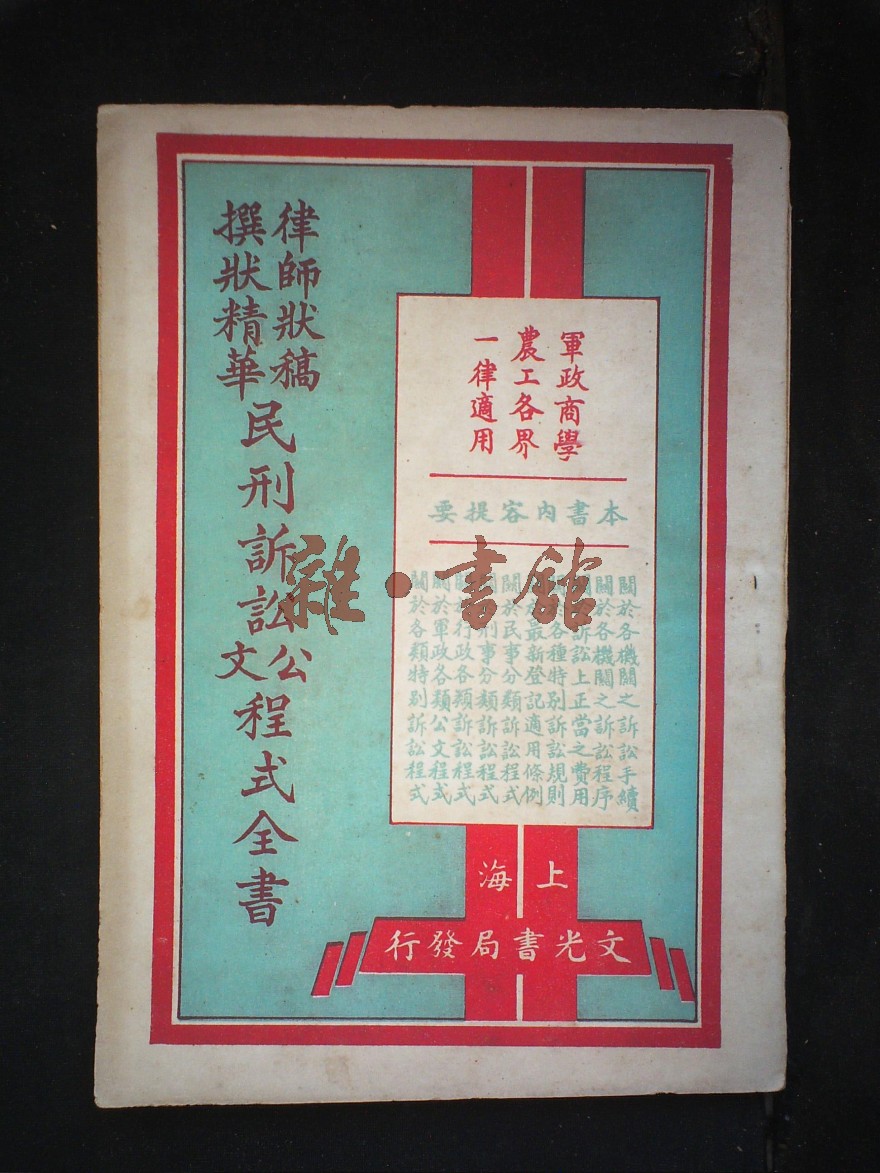 軍政商學
農工各界
一律適用
本書內容提要
關於各機關之訴訟手續
關於各機關之訴訟程序
訴訟上正當之費用
各種特別訴訟規則
最新登記適用條例
關於民事分類訴訟程式
刑事分類訴訟程式
行政各類訴訟程式
關於軍政各類公文程式
關於各類特別訴訟程式
律師狀稿
撰狀精華
民刑訴訟公文程式全書
上海
文光書局發行
雜·書館